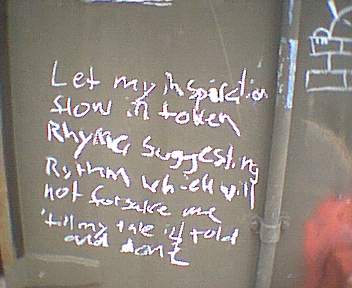 Let my inspiration
flow in token
Rhyme suggesting
Rythm which will
not forsake me
'till my tale is told
and done